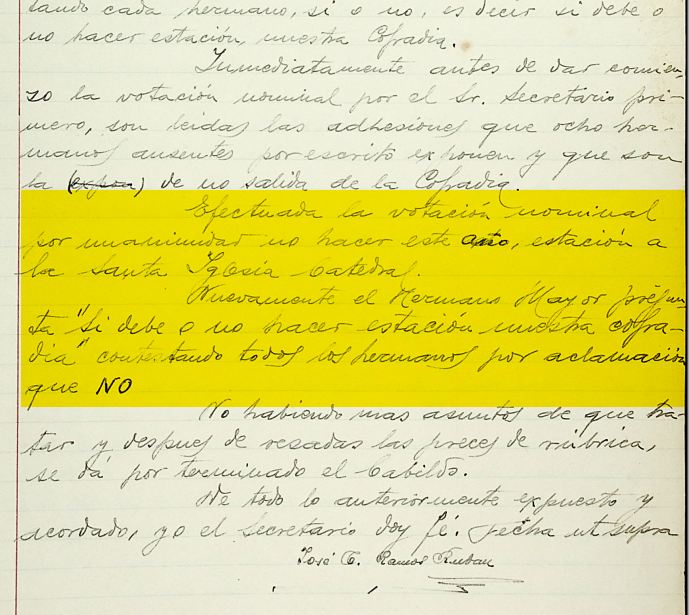 tando cada hermano, si o no, es decir si debe o
no hacer estación, nuestra Cofradia.
Inmediatamente antes de dar comien-
zo la votación nominal por el Sr. Secretario pri-
mero, son leidas las adhesiones que ocho her-
manos ausentes por escrito exponen y que son
la (expon) de no salida de la Cofradia.
Efectuada la votación nominal
por unanimidad no hacer este año, estación a
la Santa Iglesia Catedral.
Nuevamente el Hermano Mayor pregun-
ta "Si debe o no hacer estación nuestra cofra-
dia" contestando todos los hermanos por aclamación
que NO
No habiendo mas asuntos de que tra-
tar y despues de rezadas las preces de rúbrica,
se dá por terminado el Cabildo.
De todo lo anteriormente expuesto y
acordado, yo el Secretario doy fé. Fecha ut supra
José C. Ramos